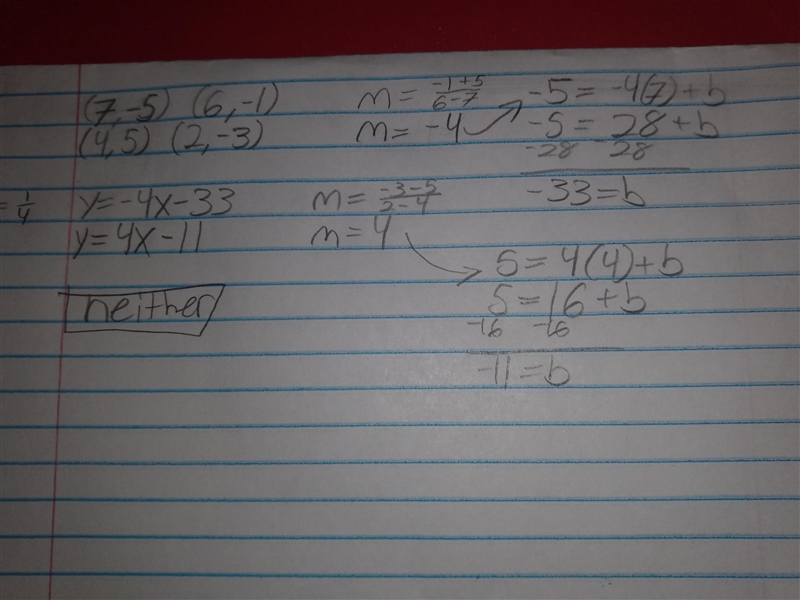 (7,-5) (6,-1)
(4,5) (2,-3)
= 1/4
y=-4x-33
y=4x-11
neither
m= -1+5/6-7
m= -4
m= -3-5/2-4
m= 4
-5= -4(7)+b
-5= 28+b
-28 28
-33=b
5=4(4)+b
5=16+b
-16 -16
-11=b